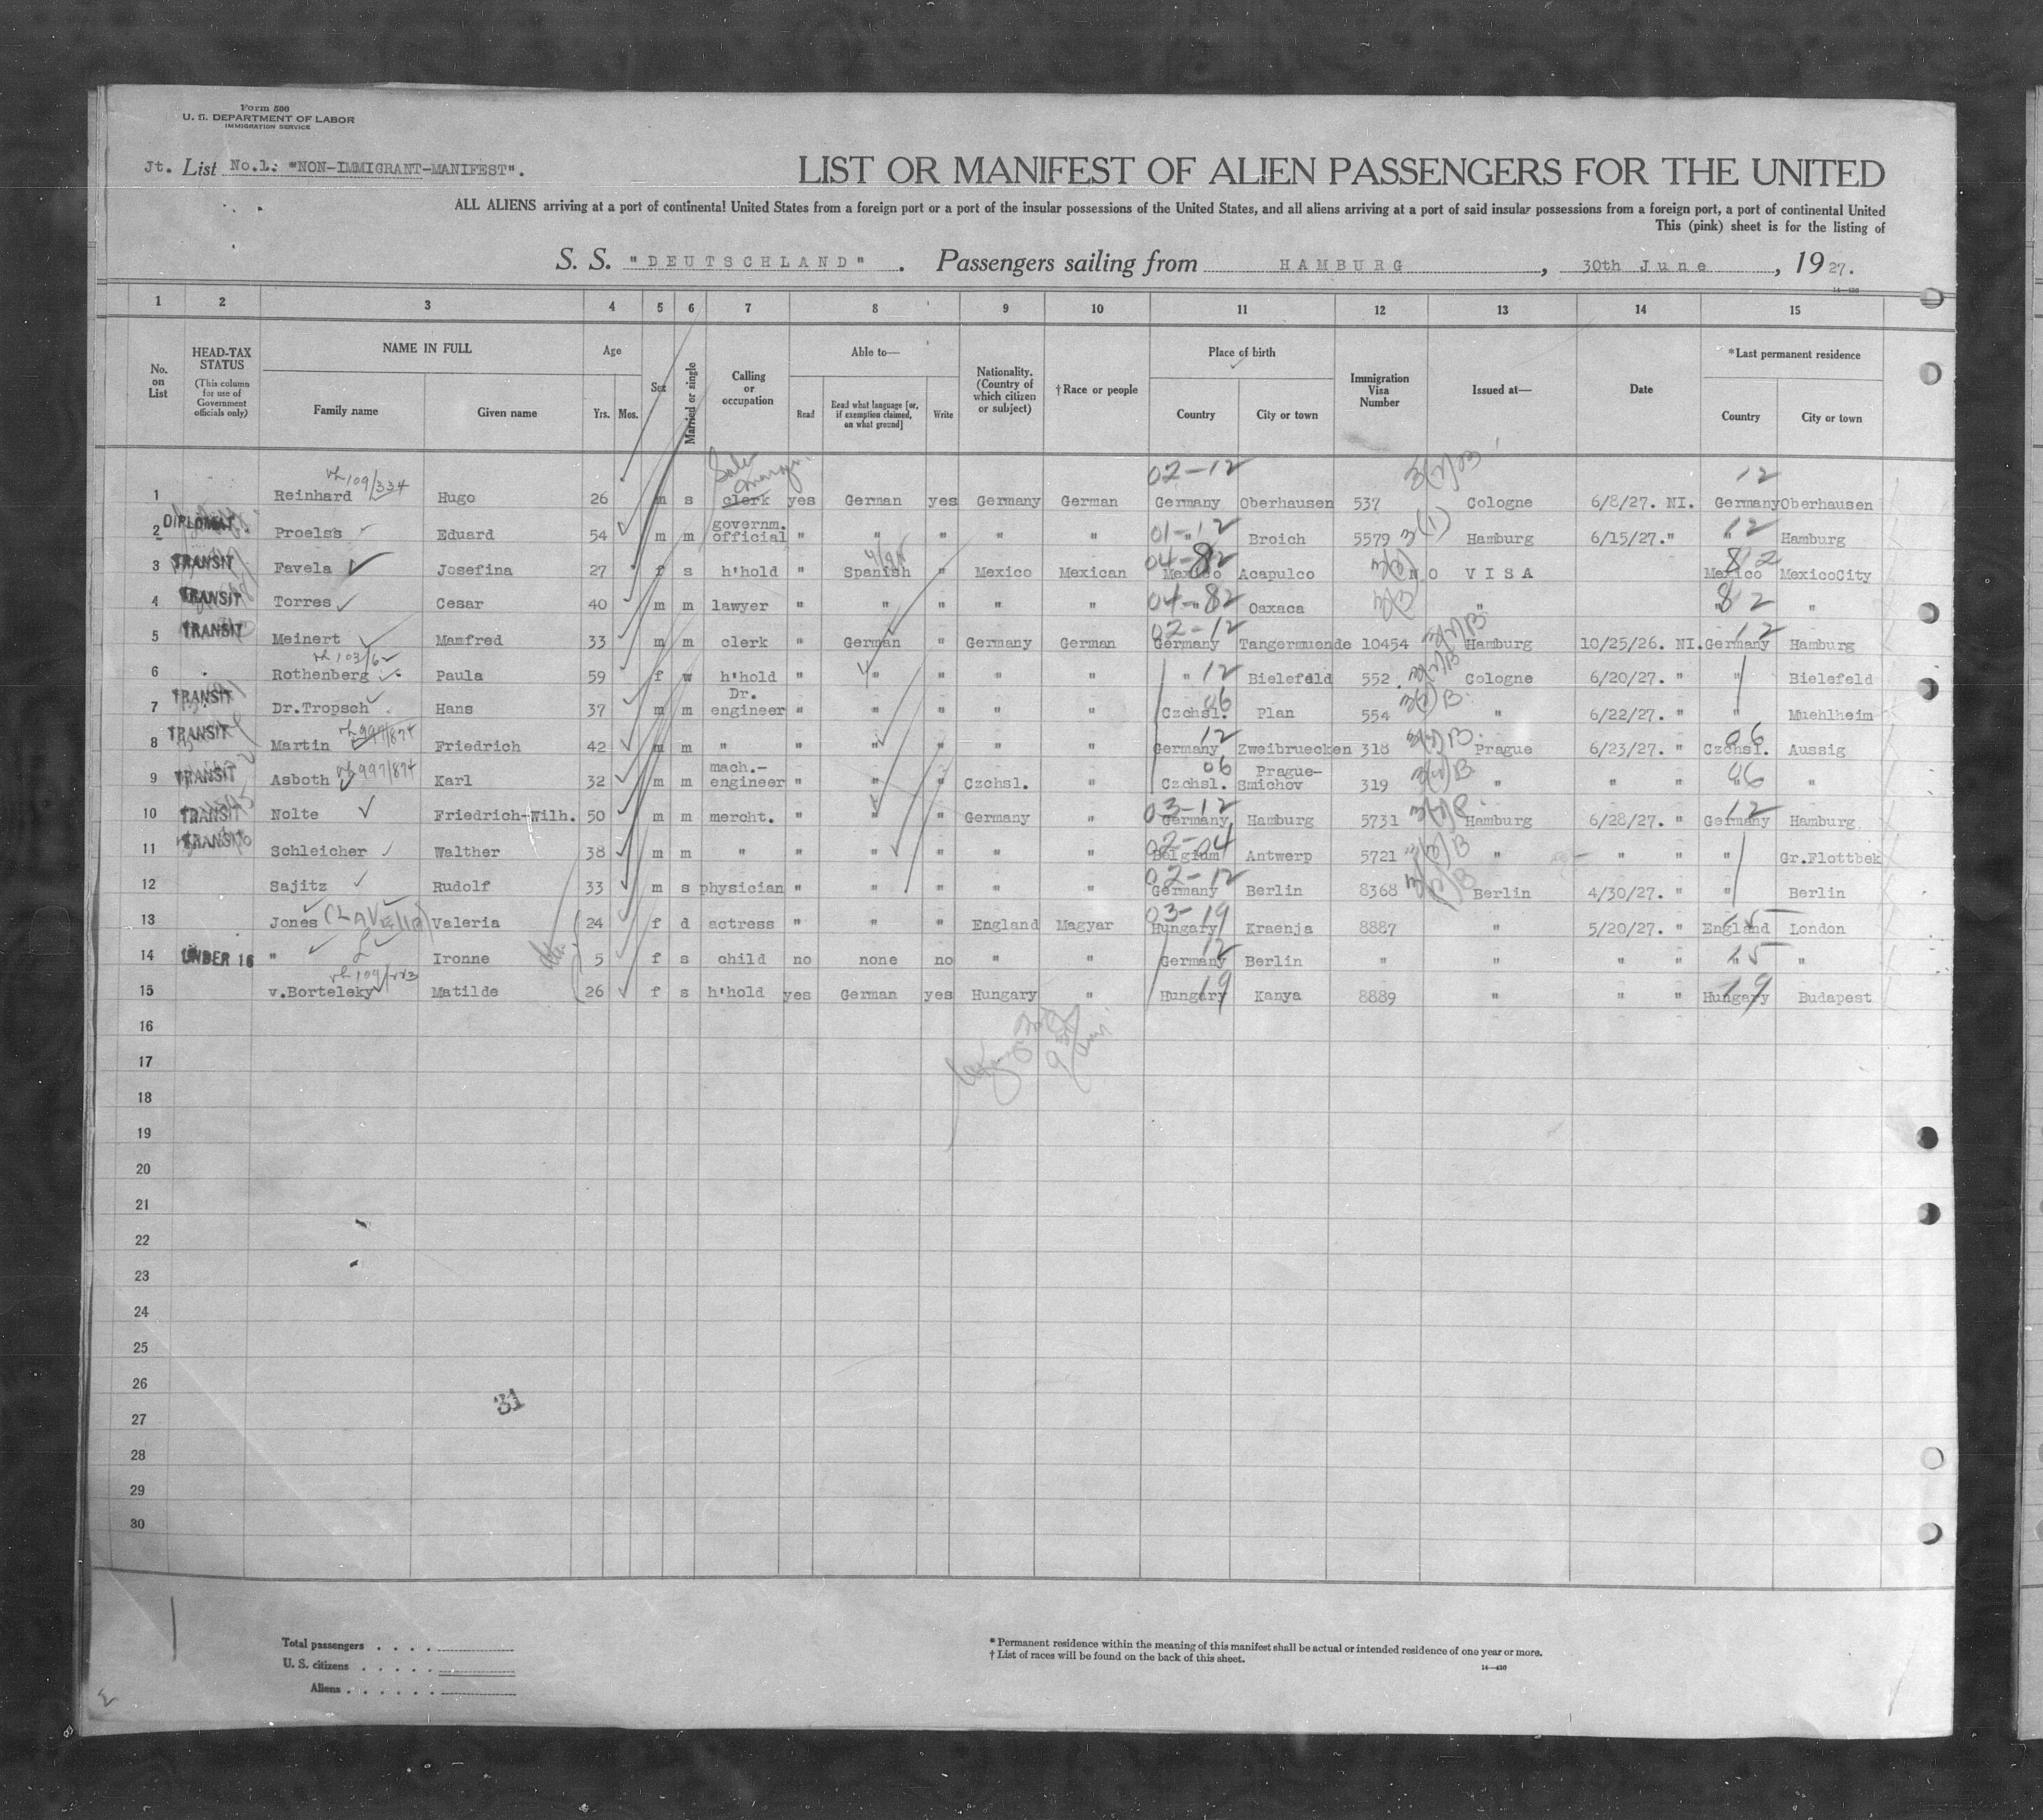 Form 500
U. S. DEPARTMENT OF LABOR
IMMIGRATION SERVICE
Jt. List No.1: "NON-IMMIGRANT-MANIFEST".
LIST OR MANIFEST OF ALIEN PASSENGERS FOR THE UNITED
ALL ALIENS arriving at a port of continental United States from a foreign port or a port of the insular possessions of the United States, and all aliens arriving at a port of said insular possessions from a foreign port, a port of continental United
This (pink) sheet is for the listing of
S. S. "DEUTSCHLAND". Passengers sailing from HAMBURG, 30th June, 1927.
14—430
1 2 3 4 5 6 7 8 9 10 11 12 13 14 15
No. on List HEAD-TAX STATUS (This column for use of Government officials only) NAME IN FULL Family name Given name Age Yrs. Mos. Sex Married or single Calling or occupation Able to— Read Read what language [or, if exemption claimed, on what ground] Write Nationality. (Country of which citizen or subject) †Race or people Place of birth Country City or town Immigration Visa Number Issued at— Date *Last permanent residence Country City or town
109/334 Sales 02-12 3(2)B 12
1 Reinhard Hugo 26 m s clerk yes German yes Germany German Germany Oberhausen 537 Cologne 6/8/27. NI. Germany Oberhausen
2 DIPLOMAT Proelss Eduard 54 m m governm. official " " " " " 01-12 " Broich 5579 3(1) Hamburg 6/15/27." 12 Hamburg
3 TRANSIT Favela Josefina 27 f s h'hold " Spanish " Mexico Mexican 04-82 Mexico Acapulco 3(3) NO VISA 82 Mexico MexicoCity
4 TRANSIT Torres Cesar 40 m m lawyer " " " " " 04-82 " Oaxaca 3(3) " 82 " "
5 TRANSIT Meinert Mamfred 33 m m clerk " German " Germany German 02-12 Germany Tangermuende 10454 3(2)B Hamburg 10/25/26. NI. 12 Germany Hamburg
103/62
6 Rothenberg Paula 59 f w h'hold " " " " " " 12 Bielefeld 552 3(2)B Cologne 6/20/27. " " Bielefeld
7 TRANSIT Dr.Tropsch Hans 37 m m Dr. engineer " " " " " 06 Czchsl. Plan 554 3(2)B " 6/22/27. " " Muehlheim
8 TRANSIT Martin 997/874 Friedrich 42 m m " " " " " " 12 Germany Zweibruecken 318 3(3)B Prague 6/23/27. " 06 Czchsl. Aussig
9 TRANSIT Asboth 997/874 Karl 32 m m mach.-engineer " " " Czchsl. " 06 Czchsl. Prague-Smichov 319 3(2)B " " " 06 " "
10 TRANSIT Nolte Friedrich-Wilh. 50 m m mercht. " " " Germany " 03-12 Germany Hamburg 5731 Hamburg 6/28/27. " 12 Germany Hamburg
11 TRANSIT Schleicher Walther 38 m m " " " " " " 02-04 Belgium Antwerp 5721 3(3)B " " " " Gr.Flottbek
12 Sajitz Rudolf 33 m s physician " " " " " 02-12 Germany Berlin 8368 3(2)B Berlin 4/30/27. " " Berlin
13 Jones Valeria 24 f d actress " " " England Magyar 03-19 Hungary Kraenja 8887 " 5/20/27. " England London
14 UNDER 16 " Ironne 5 f s child no none no " " 12 Germany Berlin " " " " " "
15 v.Borteleky Matilde 26 f s h'hold yes German yes Hungary " 19 Hungary Kanya 8889 " " " 19 Hungary Budapest
16
17
18
19
20
21
22
23
24
25
26
27
28
29
30
31
Total passengers
U. S. citizens
Aliens
* Permanent residence within the meaning of this manifest shall be actual or intended residence of one year or more.
† List of races will be found on the back of this sheet.
14—430